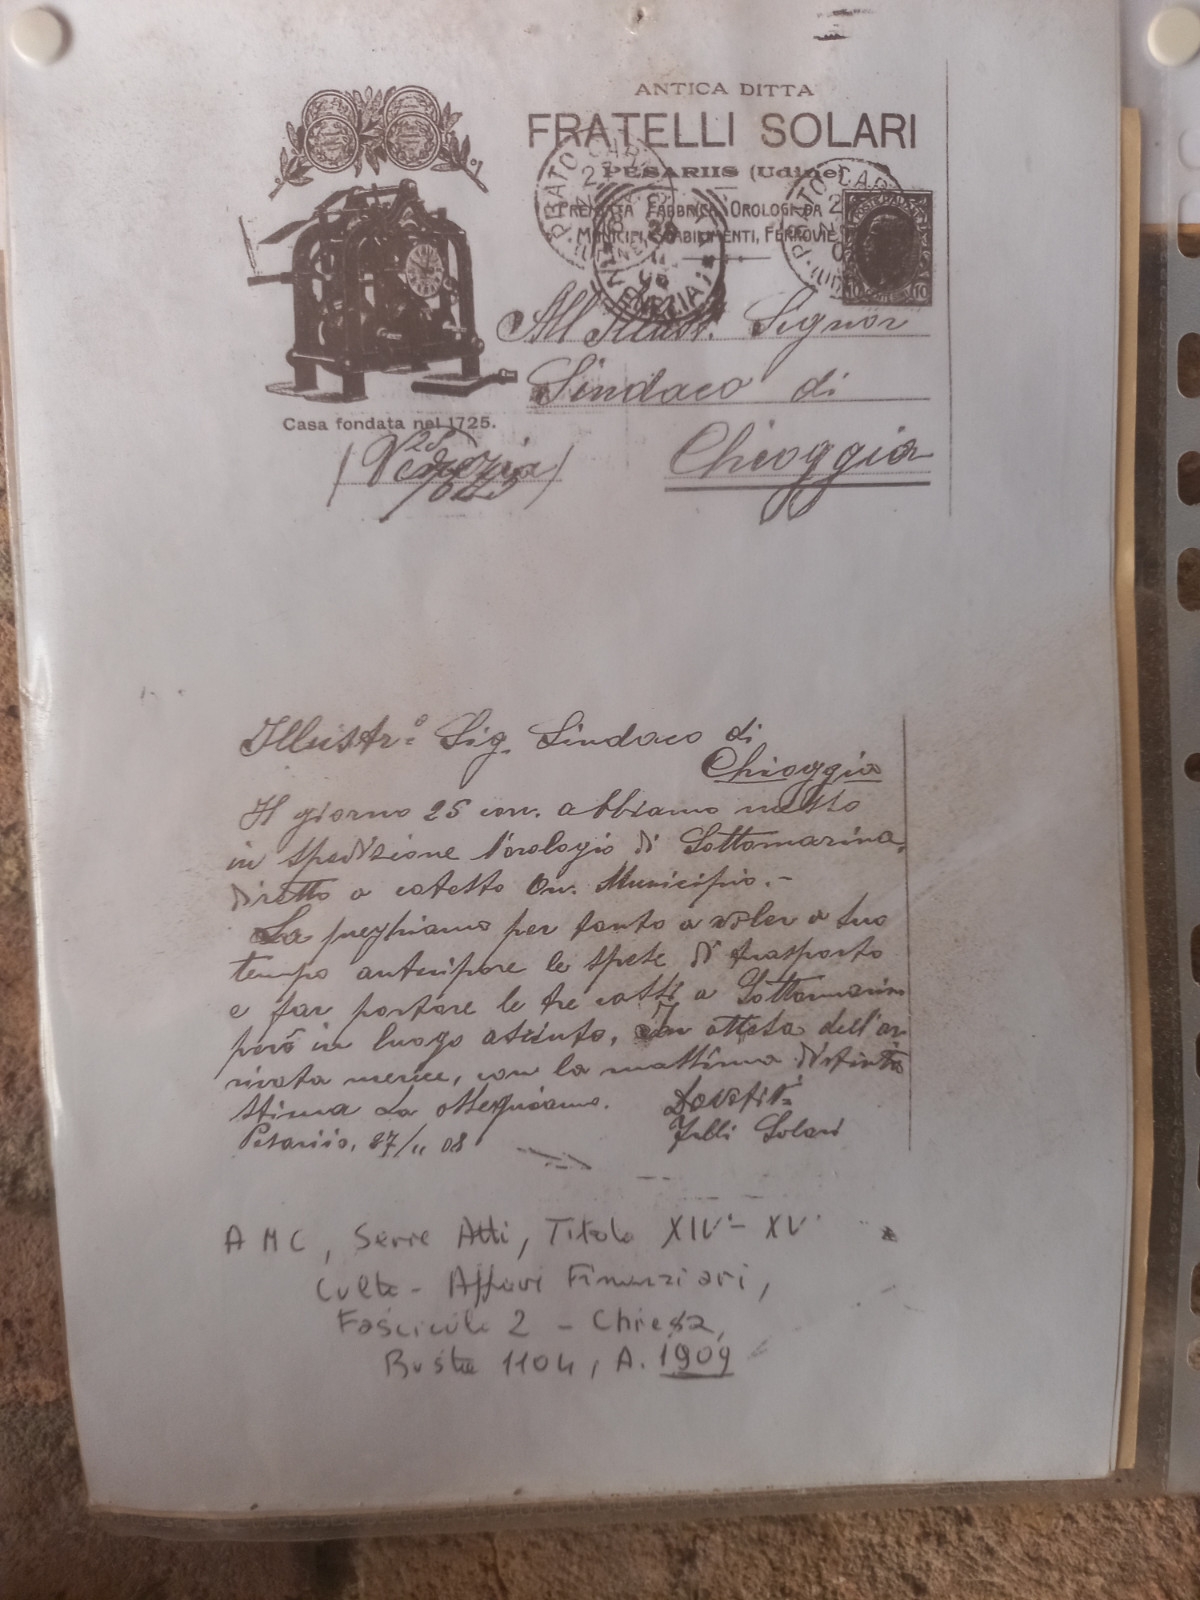 ANTICA DITTA
FRATELLI SOLARI
PESARIIS (Udine)
PREMIATA FABBRICA OROLOGI DA
MUNICIPI, STABILIMENTI, FERROVIE
PRATO CAR
PRATO CAR
VENEZIA
10 10
Casa fondata nel 1725.
All'Illust. Signor
Sindaco di
Chioggia
(Venezia)
Illustr.º Sig. Sindaco di
Chioggia
Il giorno 25 corr. abbiamo messo
in spedizione l'orologio di Sottomarina,
diretto a cotesto On. Municipio.-
La preghiamo per tanto a voler a suo
tempo anticipare le spese di trasporto
e far portare le tre cassi a Sottomarin
però in luogo asciuto, In attesa dell'ar
rivata merce, con la massima distinta
stima La ossequiamo. Devotis.i
Pesariis, 27/11 08 F.lli Solari
AMC, Serie Atti, Titolo XIV - XV
Culto - Affari Finanziari,
Fascicolo 2 - Chiesa,
Busta 1104, A. 1909